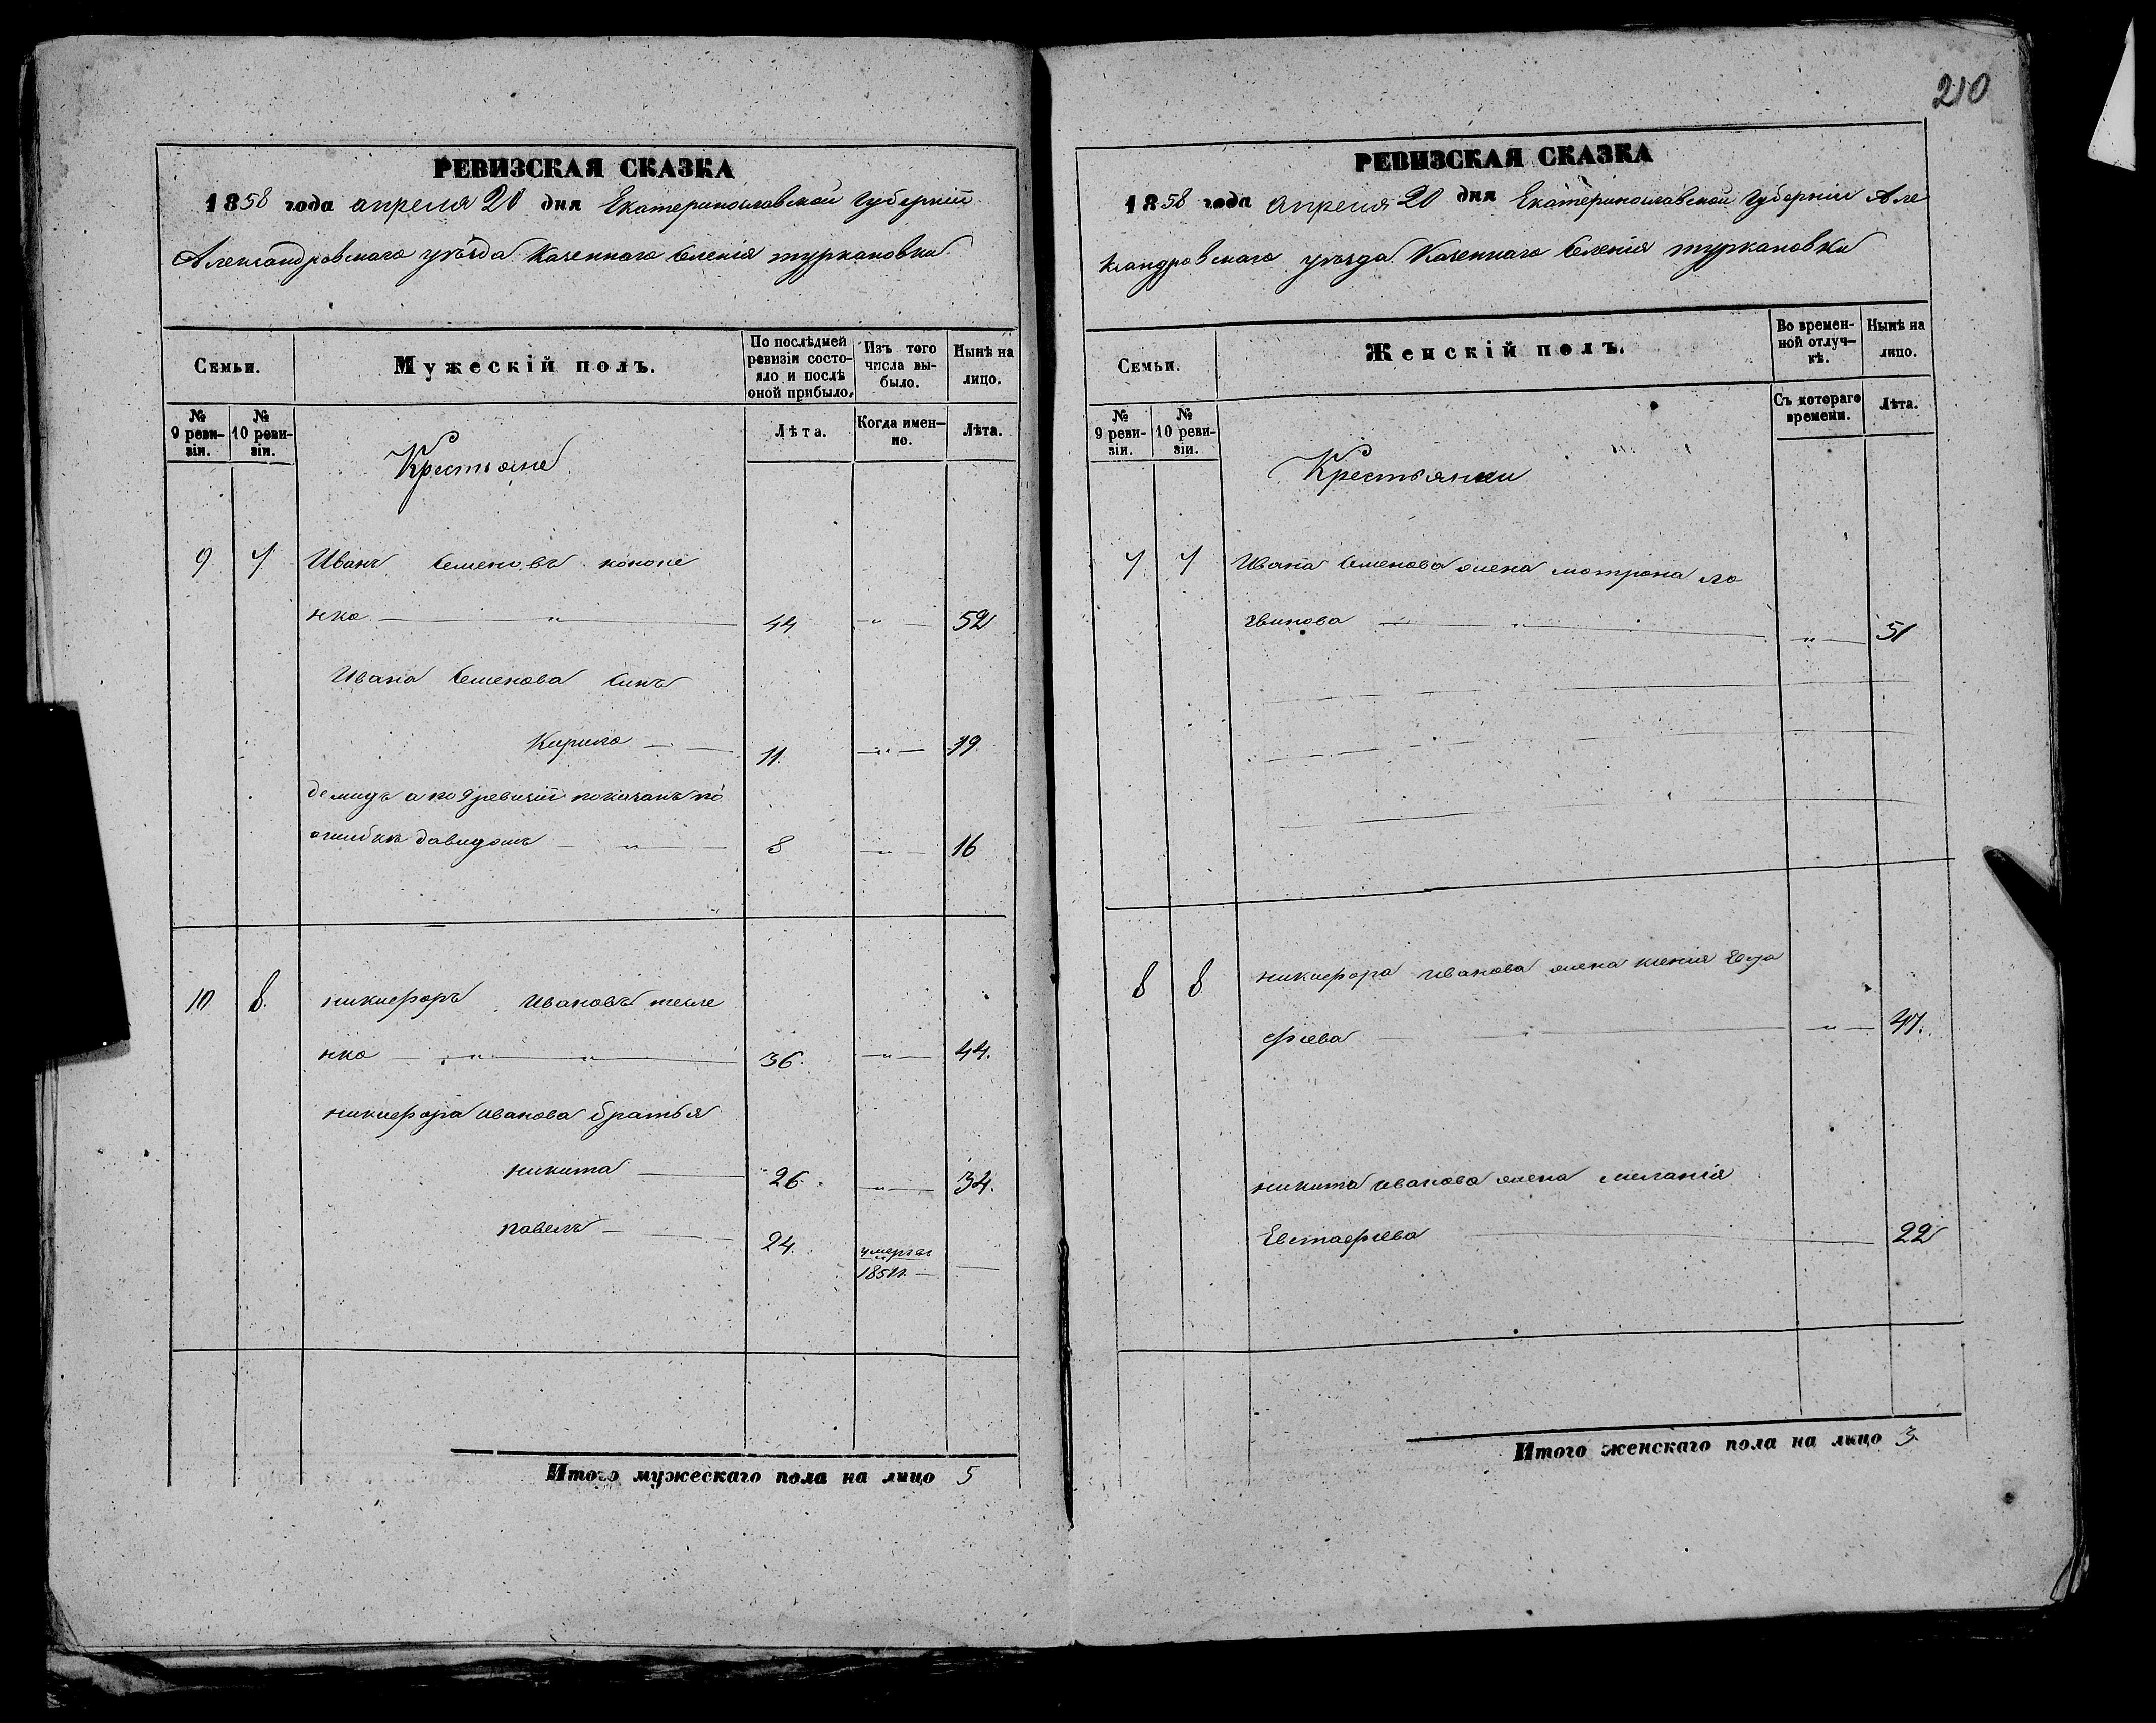 210
РЕВИЗСКАЯ СКАЗКА
1858 года апреля 20 дня Екатеринославской Губернїи
Александровскаго уѣзда Казеннаго Селенія туркановки
Семьи.
Мужескій полъ.
По послѣдней ревизіи состояло и послѣ оной прибыло.
Изъ того числа выбыло.
Нынѣ на лицо.
№ 9 ревизіи.
№ 10 ревизіи.
Лѣта.
Когда именно.
Лѣта.
Крестьяне
9 7 Иванъ Семеновъ кононе
нко — " — 44 — " — 52
Ивана Семенова Синъ
Кирило — — 11. — " — 19
демидъ а по 9 ревизїи показанъ по
ошибкѣ давидомъ — " — 8 — " — 16
10 8. никифоръ Ивановъ
нко — " — " — 36. — " — 44.
никифора иванова братья
никита — 26. — " — 34.
павелъ — — 24. умеръ въ —
Итого мужескаго пола на лицо 5
РЕВИЗСКАЯ СКАЗКА
1858 года Апреля 20 дня Екатеринославской Губернїи Але
ксандровскаго уѣзда Казеннаго Селенія туркановки
Семьи.
Женскій полъ.
Во временной отлучкѣ.
Нынѣ на лицо.
№ 9 ревизіи.
№ 10 ревизіи.
Съ котораго времени.
Лѣта.
Крестьянки
7 7 Ивана Семенова жена мотрона ло
гвинова — " — " — 51
8 8 никифора Иванова жена ксенія
фіева — " — " — 47.
никита иванова жена меланія
Евстафіева — 22
Итого женскаго пола на лицо 3